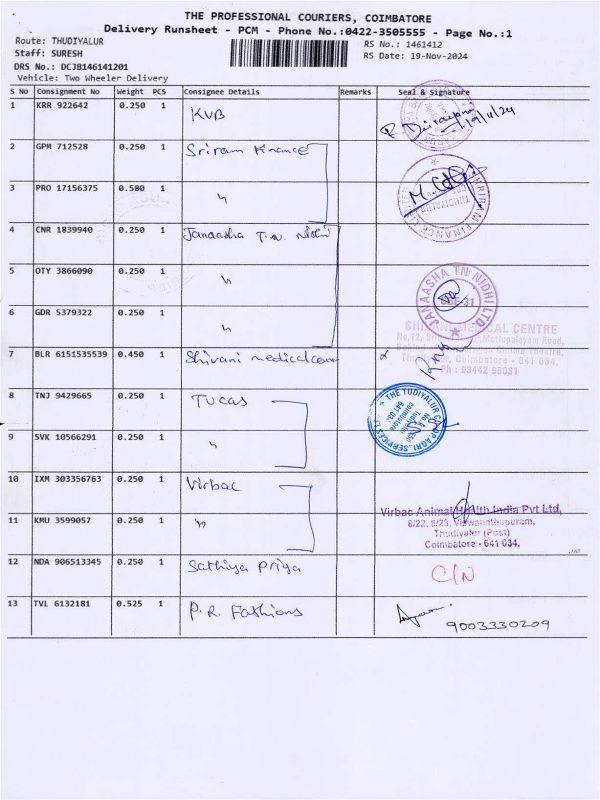 THE PROFESSIONAL COURIERS, COIMBATORE
Delivery Runsheet - PCM - Phone No.:0422-3505555 - Page No.:1
Route: THUDIYALUR
RS No.: 1461412
Staff: SURESH
RS Date: 19-Nov-2024
DRS No.: DCJB146141201
Vehicle: Two Wheeler Delivery
S No Consignment No Weight PCS Consignee Details Remarks Seal & Signature
1 KRR 922642 0.250 1 KVB
19/11/24
2 GPM 712528 0.250 1 Sriram Finance
3 PRO 17156375 0.580 1 "
SHRIRAM FINANCE
THUDIYALUR
4 CNR 1839940 0.250 1 Janaasha T.N. Nidhi
5 OTY 3866090 0.250 1 "
JANAASHA TN NIDHI LTD
6 GDR 5379322 0.250 1 "
SHIVANI MEDICAL CENTRE
Mettupalayam Road,
Theatre,
Thudiyalur, Coimbatore - 641 034.
Ph : 93442 98031
7 BLR 6151535539 0.450 1 Shivani medical
8 TNJ 9429665 0.250 1 TUCAS
THE TUDIYALUR CO-OP AGRL. SERVICES
9 SVK 10566291 0.250 1 "
10 IXM 303356763 0.250 1 Virbac
Virbac Animal Health India Pvt Ltd,
8/22, 8/23, Viswanathapuram,
11 KMU 3599057 0.250 1 "
Thudiyalur (Post)
Coimbatore - 641 034.
12 NDA 906513345 0.250 1 Sathiya Priya
C/N
13 TVL 6132181 0.525 1 P.R. Fathions
9003330209